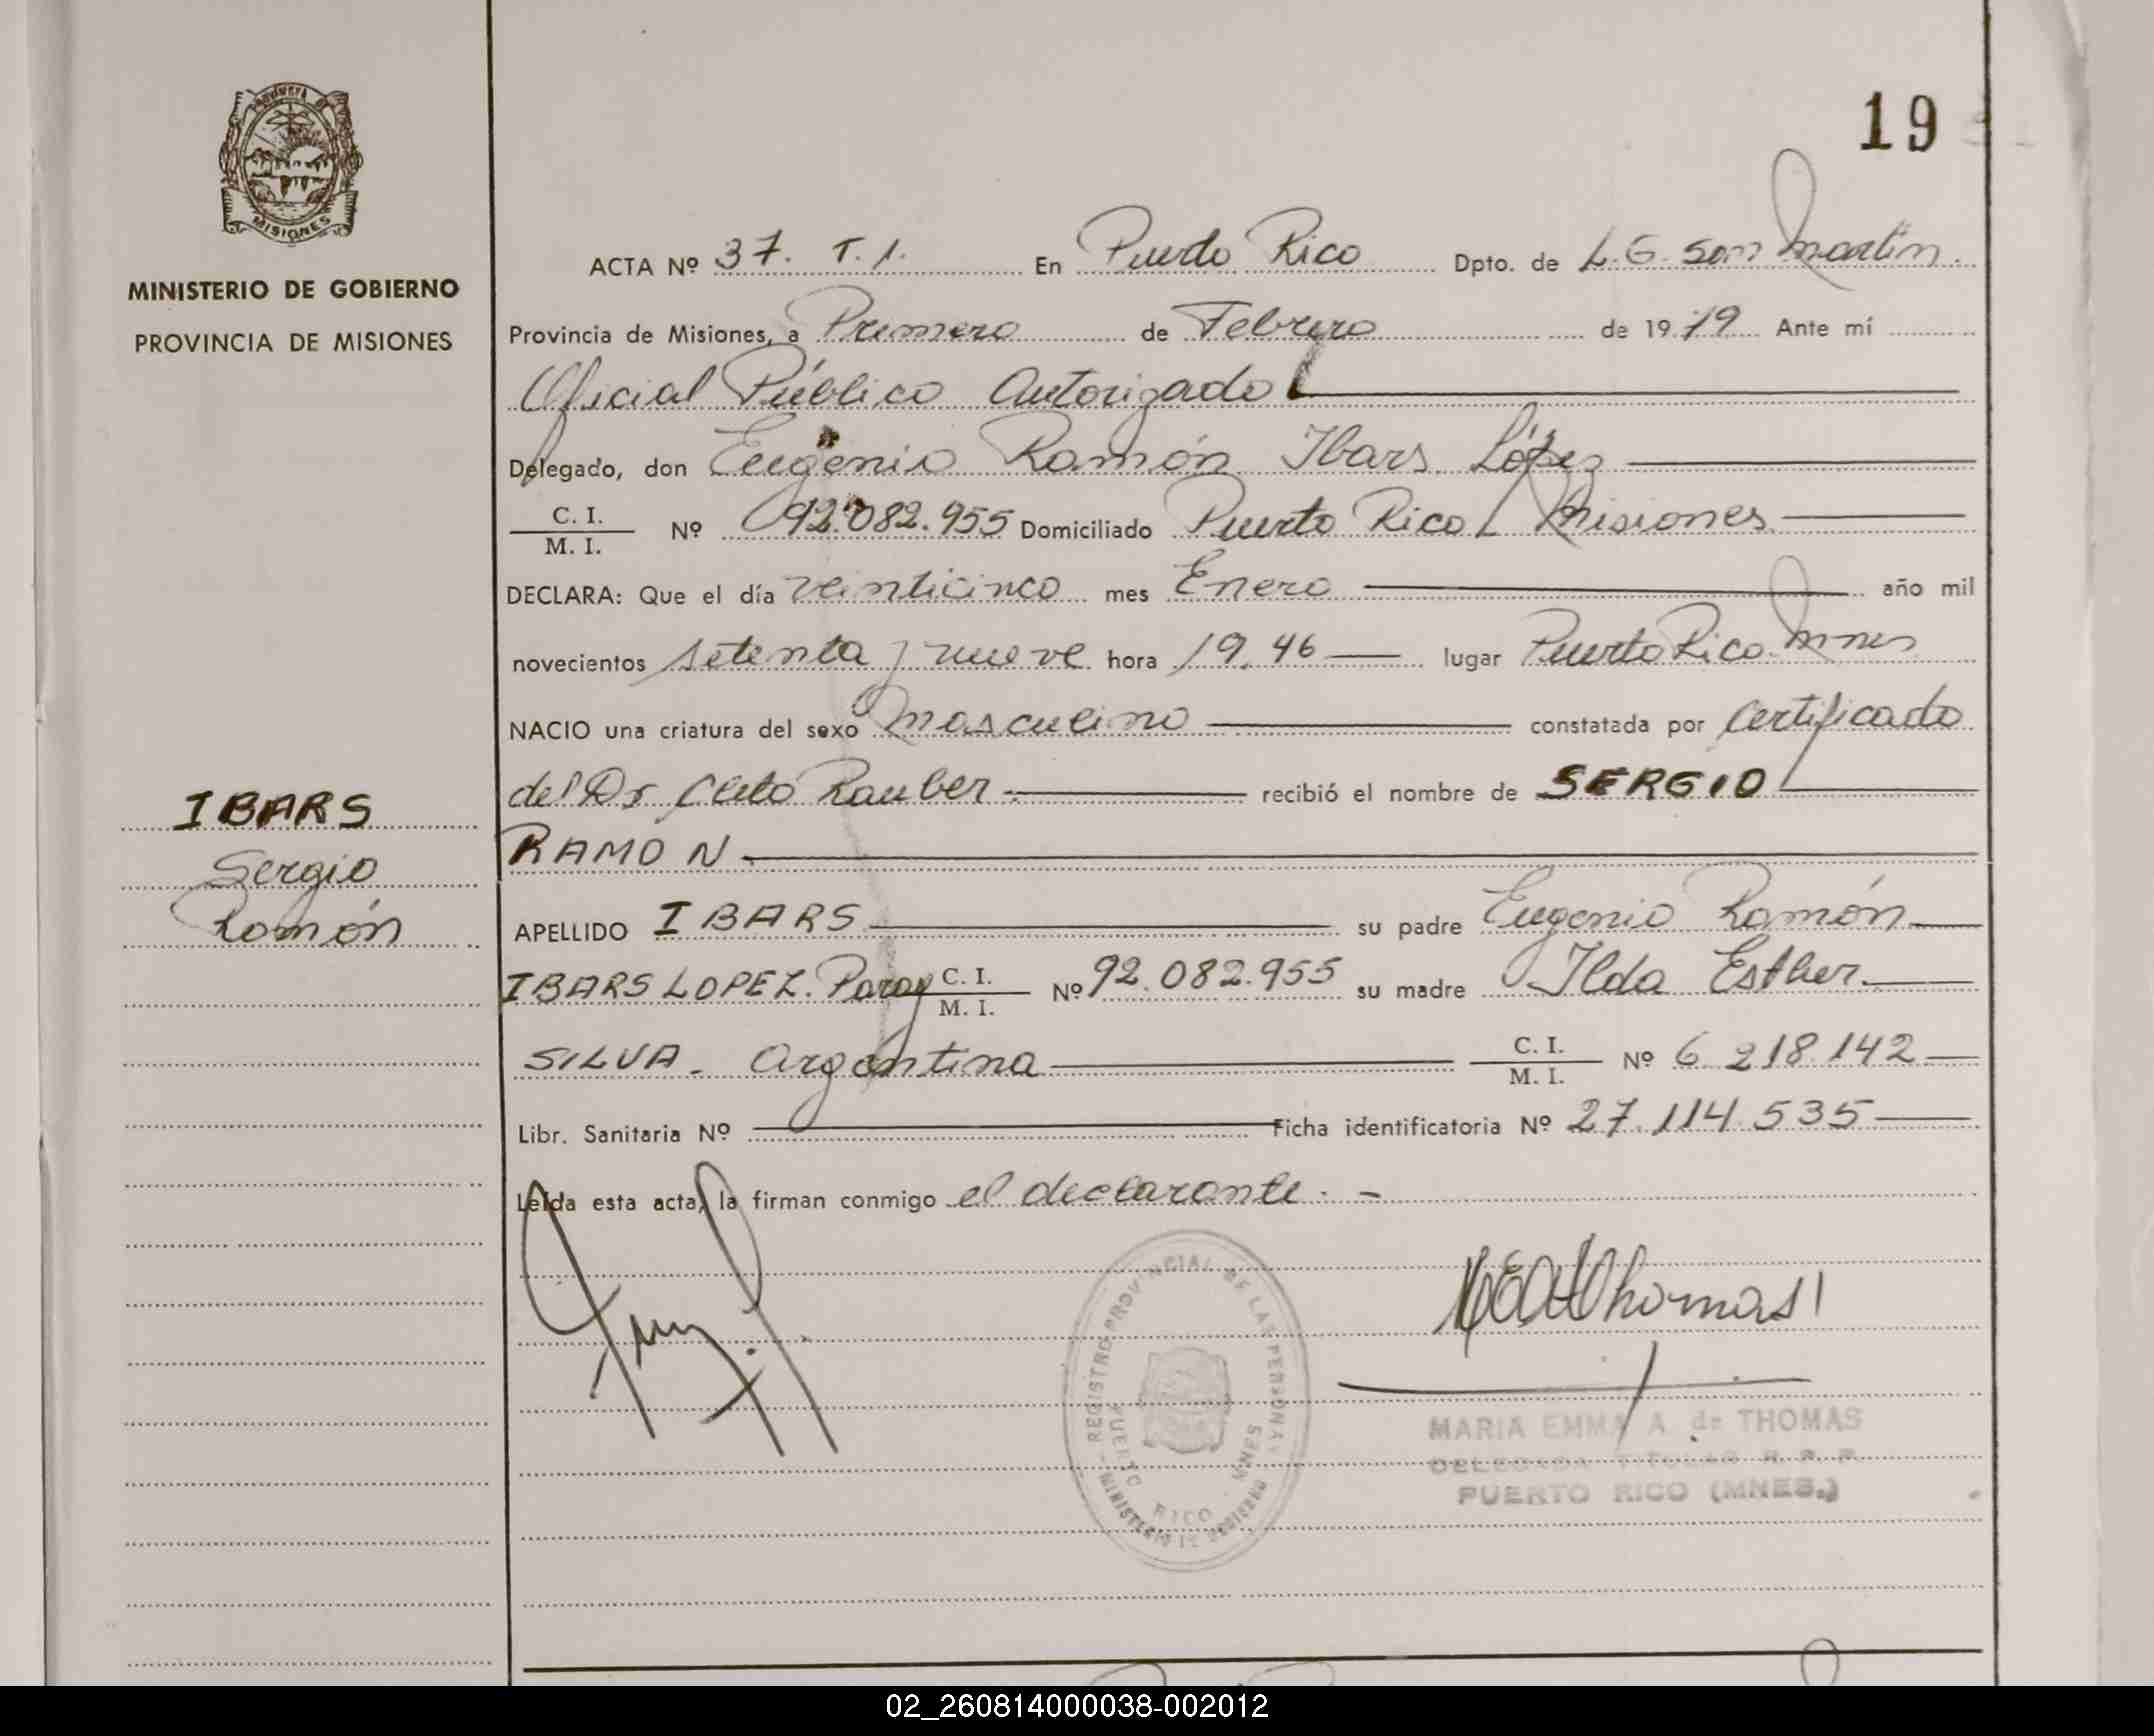 19
MISIONES
MINISTERIO DE GOBIERNO
PROVINCIA DE MISIONES
IBARS
Sergio
Ramón
ACTA Nº 37. T. 1. En Puerto Rico Dpto. de L. G. San Martín.
Provincia de Misiones, a Primero de Febrero de 1979 Ante mí
Oficial Público Autorizado
Delegado, don Eugenio Ramón Ibars López
C. I. / M. I. Nº 92.082.955 Domiciliado Puerto Rico Misiones
DECLARA: Que el día veinticinco mes Enero año mil
novecientos setenta y nueve hora 19,46 lugar Puerto Rico Mnes
NACIO una criatura del sexo masculino constatada por certificado
del Dr Cleto Rauber. recibió el nombre de SERGIO
RAMON
APELLIDO IBARS su padre Eugenio Ramón
IBARS LOPEZ. Parag C. I. / M. I. Nº 92.082.955 su madre Ilda Esther
SILVA. Argentina C. I. / M. I. Nº 6.218.142
Libr. Sanitaria Nº Ficha identificatoria Nº 27.114.535
Leída esta acta, la firman conmigo el declarante. -
REGISTRO PROVINCIAL DE LAS PERSONAS
PUERTO RICO - MNES
MINISTERIO DE GOBIERNO
MARIA EMMA A. de THOMAS
DELEGADA TITULAR R. P. P.
PUERTO RICO (MNES.)
02_260814000038-002012